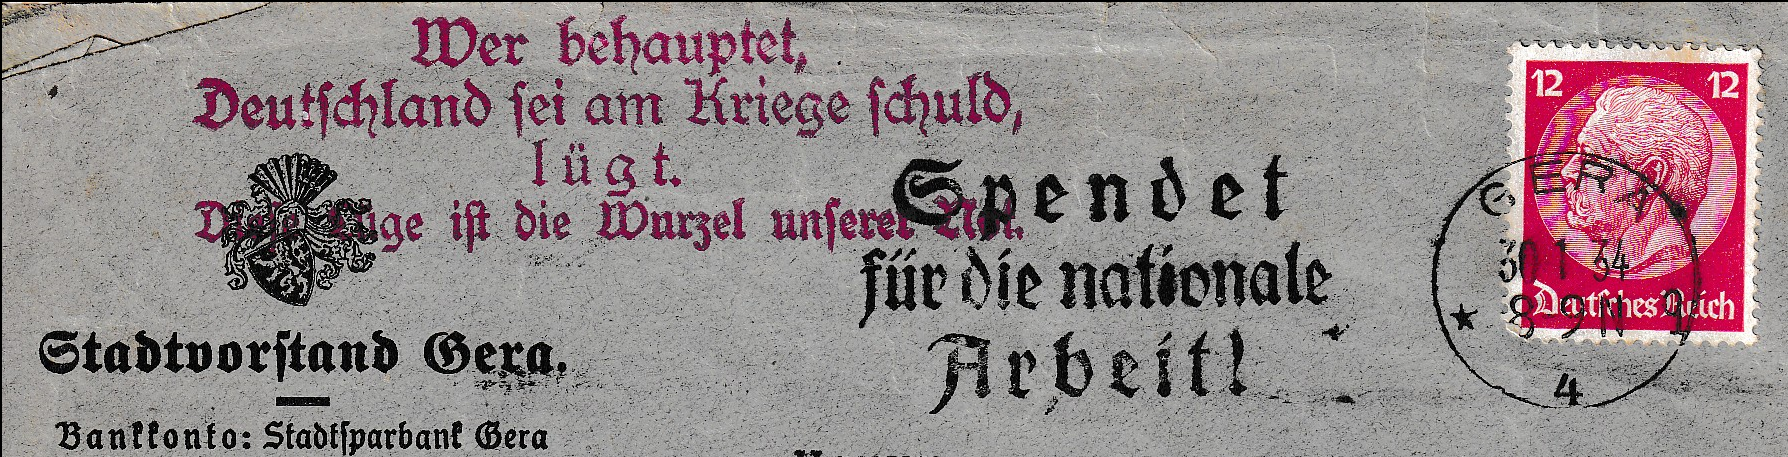 Wer behauptet,
Deutschland sei am Kriege schuld,
lügt.
Diese Lüge ist die Wurzel unserer Not.
Stadtvorstand Gera.
Bankkonto: Stadtsparbank Gera
Spendet
für die nationale
Arbeit!
12 12
Deutsches Reich
GERA
30 1 34
* 8-9N
4